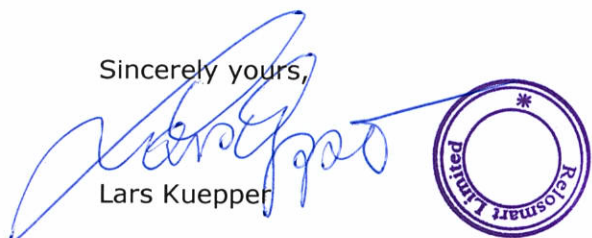 Sincerely yours,
Lars Kuepper
Relosmart Limited